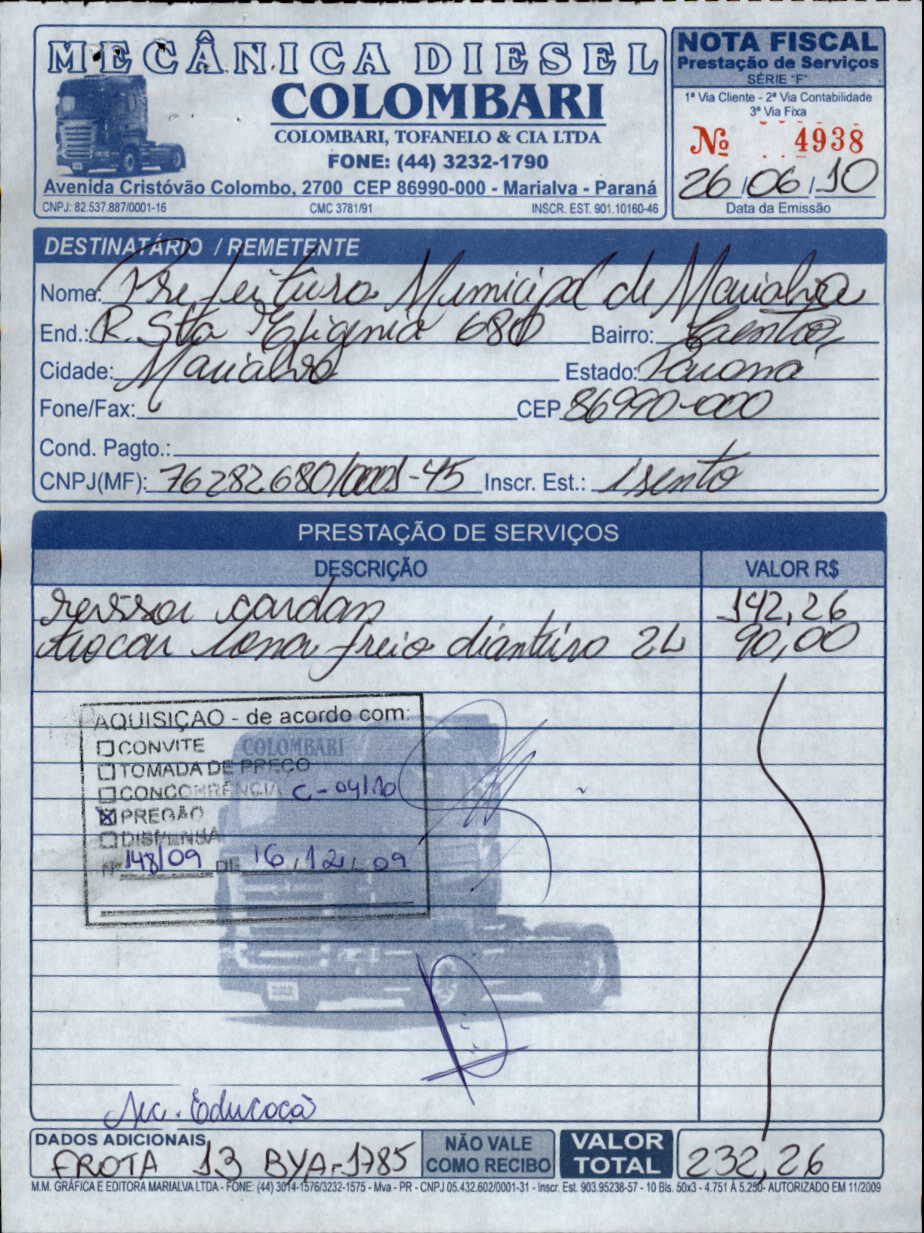 MECÂNICA DIESEL
COLOMBARI
COLOMBARI, TOFANELO & CIA LTDA
FONE: (44) 3232-1790
Avenida Cristóvão Colombo, 2700 CEP 86990-000 - Marialva - Paraná
CNPJ: 82.537.887/0001-16 CMC 3781/91 INSCR. EST. 901.10160-46
NOTA FISCAL
Prestação de Serviços
SÉRIE "F"
1ª Via Cliente - 2ª Via Contabilidade
3ª Via Fixa
Nº 4938
26/06/10
Data da Emissão
DESTINATÁRIO / REMETENTE
Nome: Prefeitura Municipal de Marialva
End.: R. Sta Efigenia 680 Bairro: Centro
Cidade: Marialva Estado: Paraná
Fone/Fax: CEP 86990-000
Cond. Pagto.:
CNPJ(MF): 76282680/0001-45 Inscr. Est.: Isento
PRESTAÇÃO DE SERVIÇOS
DESCRIÇÃO VALOR R$
cardan 142,26
trocar lona freio dianteiro 2L 90,00
AQUISIÇAO - de acordo com:
CONVITE
TOMADA DE PREÇO
CONCORRÊNCIA C-04/10
PREGÃO
DISPENSA
Nº 148/09 DE 16/12/09
COLOMBARI
Sec. Educaçã
DADOS ADICIONAIS
FROTA 13 BYA-1785
NÃO VALE
COMO RECIBO
VALOR
TOTAL
232,26
M.M. GRÁFICA E EDITORA MARIALVA LTDA - FONE: (44) 3014-1576/3232-1575 - Mva - PR - CNPJ 05.432.602/0001-31 - Inscr. Est. 903.95238-57 - 10 Bls. 50x3 - 4.751 A 5.250 - AUTORIZADO EM 11/2009